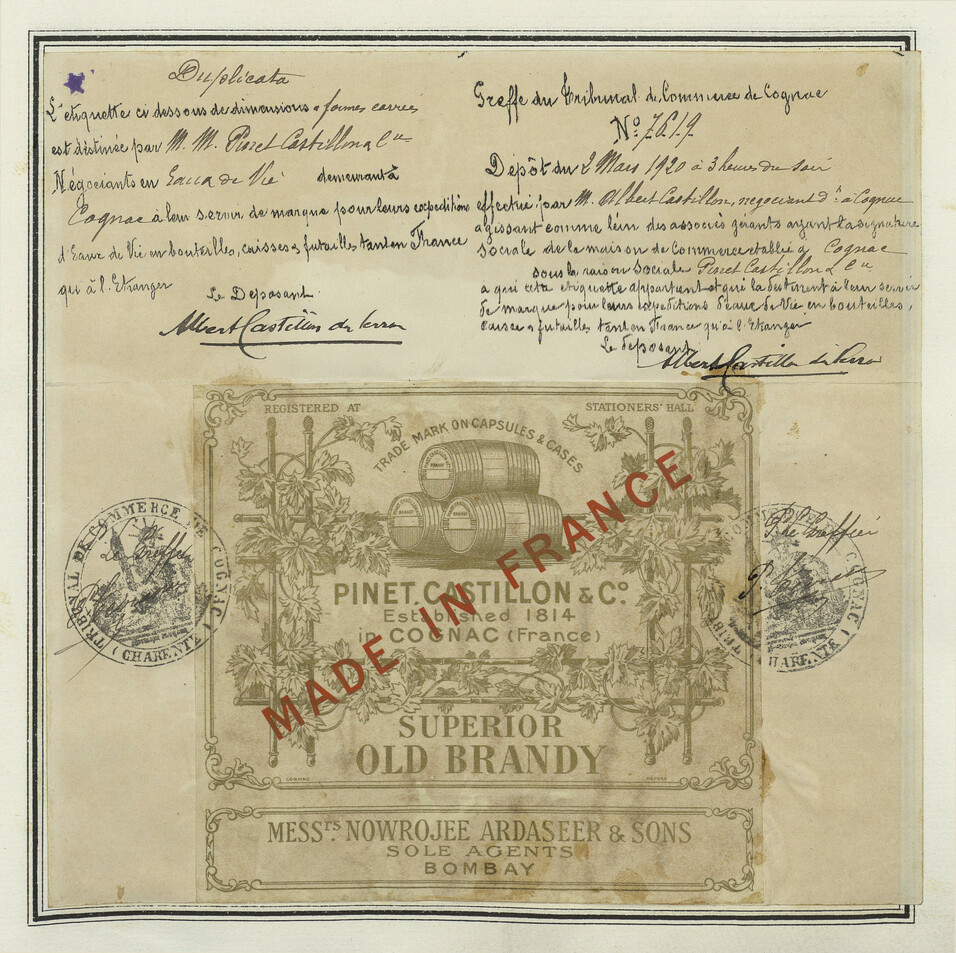 Duplicata
L'etiquette ci dessous de dimensions & formes carrées
est destinée par M. M. Pinet Castillon & Cie
Négociants en Eaux de Vie demeurant à
Cognac à leur servir de marque pour leurs expeditions
d'Eaux de Vie en bouteilles, caisses & futailles tant en France
qui à l'Etranger
Le Deposant
Albert Castillon du Perron
Greffe du Tribunal de Commerce de Cognac
No. 7619
Dépôt du 2 Mars 1920 à 3 heures du soir
effectué par M. Albert Castillon, negociant dt à Cognac
agissant comme l'un des associés gérants ayant la signature
sociale de la maison de Commerce etablie à Cognac
sous la raison sociale Pinet Castillon & Cie
a qui cette etiquette appartient et qui la destinent à leur servir
de marque pour leurs expeditions d'eaux de Vie en bouteilles,
caisses & futailles tant en France qu'à l'Etranger
Le deposant
Albert Castillon du Perron
REGISTERED AT STATIONERS' HALL
TRADE MARK ON CAPSULES & CASES
MADE IN FRANCE
PINET, CASTILLON & Co.
Established 1814
in COGNAC (France)
SUPERIOR
OLD BRANDY
MESSrs. NOWROJEE ARDASEER & SONS
SOLE AGENTS
BOMBAY
TRIBUNAL DE COMMERCE DE COGNAC
(CHARENTE)
Le Greffier
COGNAC
CHARENTE
Le Greffier